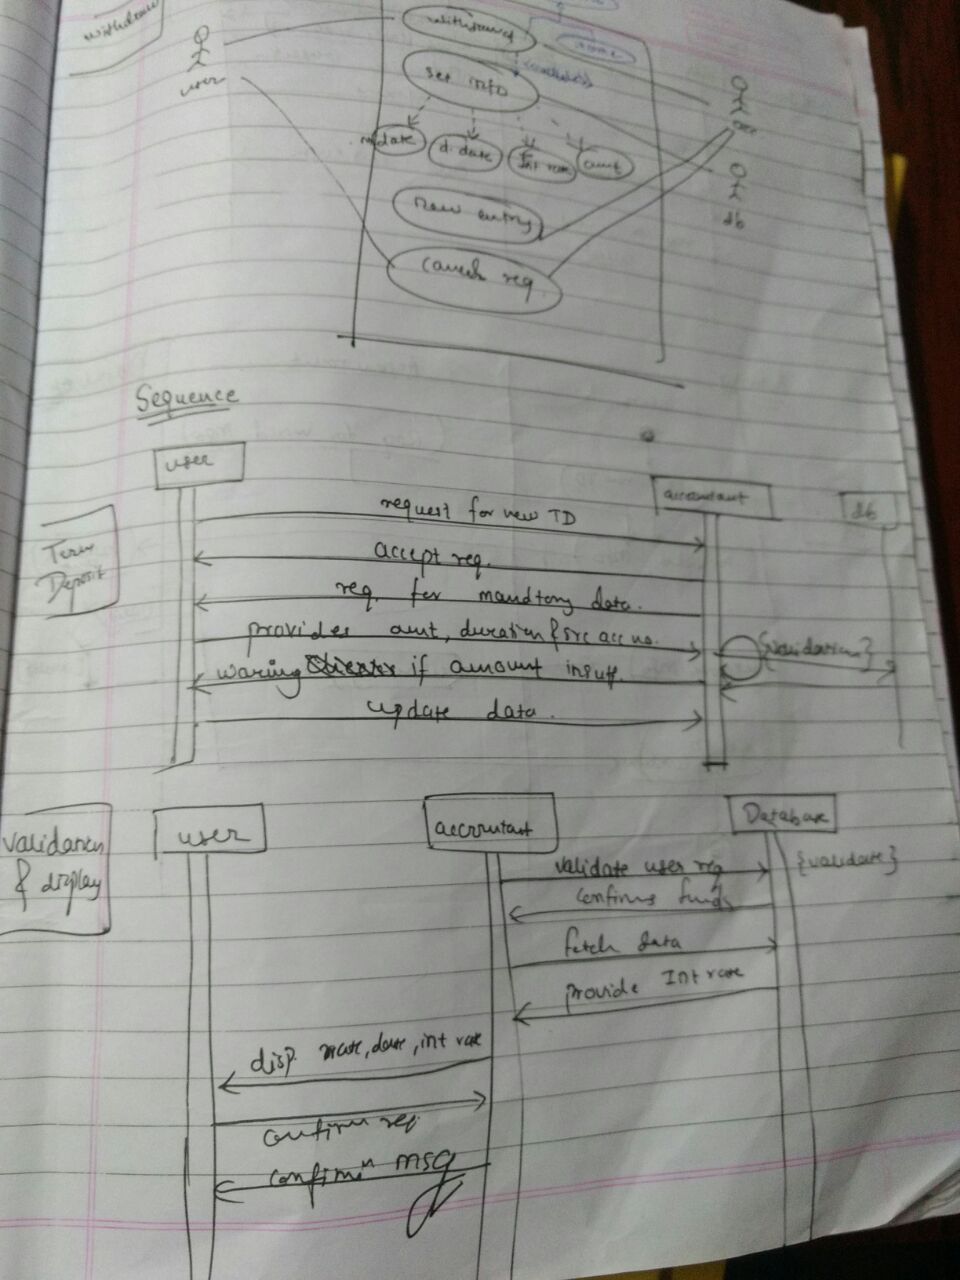 withdraw
withdraw
user
set info
m.date
d. date
Int rate
amt
db
new entry
cancel req.
Sequence
user
accountant
db
Term
Deposit
request for new TD
accept req.
req. for mandtory data.
provides amt, duration & src acc no.
{validation}
waring if amount insuff.
update data.
validation
& display
user
accountant
Database
validate user req
{validate}
confirms funds
fetch data
provide Int rate
disp. mat, date, int rate
confirm req.
confirmⁿ msg